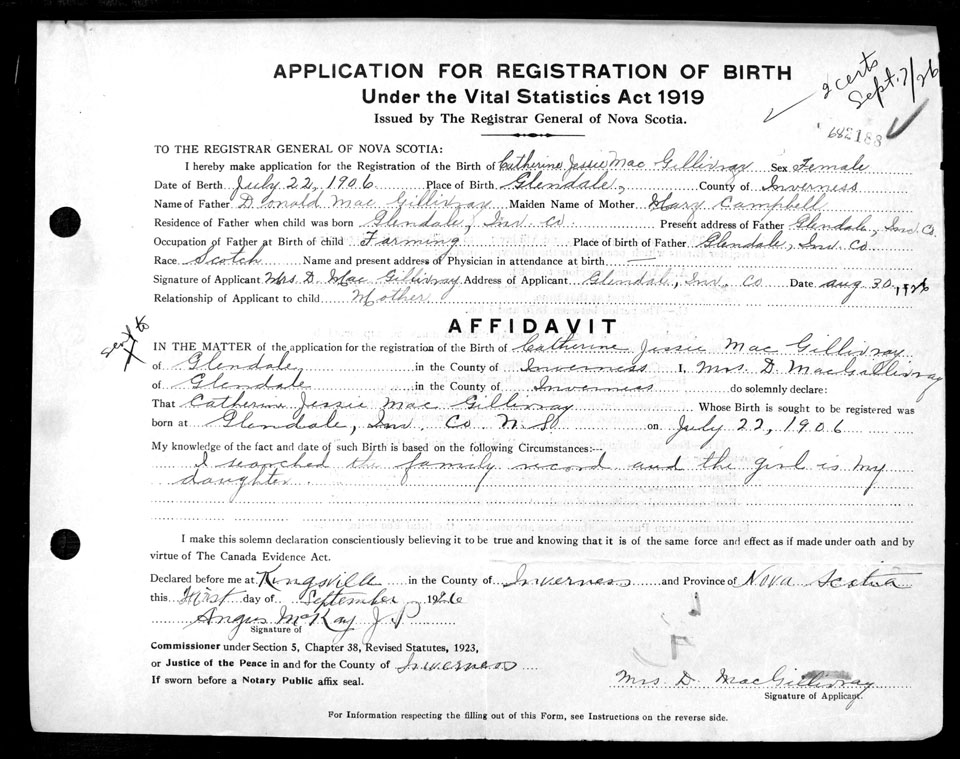 APPLICATION FOR REGISTRATION OF BIRTH
Under the Vital Statistics Act 1919
Issued by The Registrar General of Nova Scotia.
2 certs
Sept. 7/26
TO THE REGISTRAR GENERAL OF NOVA SCOTIA:
I hereby make application for the Registration of the Birth of Catherine Jessie Mac Gillivray Sex Female
Date of Berth July 22, 1906 Place of Birth Glendale, County of Inverness
Name of Father Donald Mac Gillivray Maiden Name of Mother Mary Campbell
Residence of Father when child was born Glendale, Inv. Co Present address of Father Glendale, Inv. Co.
Occupation of Father at Birth of child Farming Place of birth of Father Glendale, Inv. Co
Race Scotch Name and present address of Physician in attendance at birth —
Signature of Applicant Mrs D. Mac Gillivray Address of Applicant Glendal, Inv. Co Date Aug 30, 1926
Relationship of Applicant to child Mother
AFFIDAVIT
IN THE MATTER of the application for the registration of the Birth of Catherine Jessie Mac Gillivray
of Glendale, in the County of Inverness I, Mrs. D. MacGillivray
of Glendale in the County of Inverness do solemnly declare:
That Catherine Jessie Mac Gillivray Whose Birth is sought to be registered was
born at Glendale, Inv. Co. N.S. on July 22, 1906
My knowledge of the fact and date of such Birth is based on the following Circumstances:--
I searched the family record and the girl is my
daughter.
I make this solemn declaration conscientiously believing it to be true and knowing that it is of the same force and effect as if made under oath and by
virtue of The Canada Evidence Act.
Declared before me at Kingsville in the County of Inverness and Province of Nova Scotia
this First day of September 1926
Angus McKay J. P.
Signature of
Commissioner under Section 5, Chapter 38, Revised Statutes, 1923,
or Justice of the Peace in and for the County of Inverness
If sworn before a Notary Public affix seal.
Mrs. D. MacGillivray
Signature of Applicant.
For Information respecting the filling out of this Form, see Instructions on the reverse side.